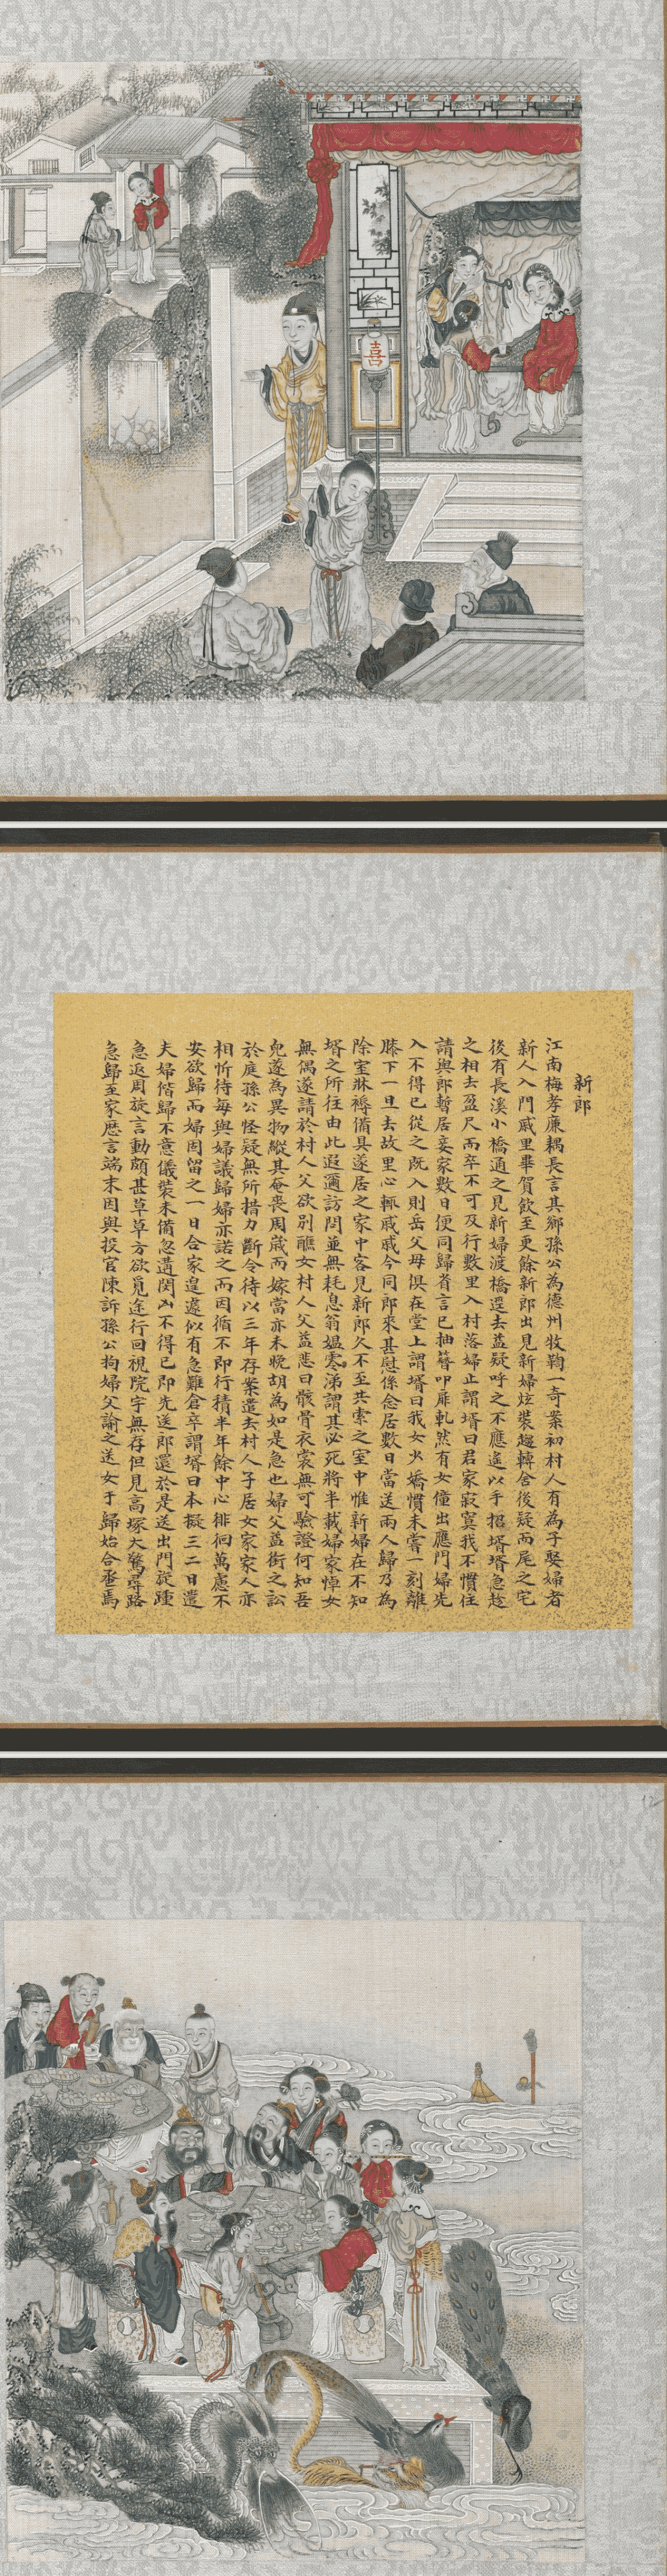 喜
新郎
江南梅孝廉耦長言其鄉孫公為德州牧鞫一奇案初村人有為子娶婦者
新人入門戚里畢賀飲至更餘新郎出見新婦炫裝趨轉舍後疑而尾之宅
後有長溪小橋通之見新婦渡橋逕去益疑呼之不應遙以手招壻壻急趁
之相去盈尺而卒不可及行數里入村落婦止謂壻曰君家寂寞我不慣住
請與郎暫居妾家數日便同歸省言已抽簪叩扉軋然有女僮出應門婦先
入不得已從之既入則岳父母俱在堂上謂壻曰我女少嬌慣未嘗一刻離
膝下一旦去故里心輒戚戚今同郎來甚慰係念居數日當送兩人歸乃為
除室牀褥備具遂居之家中客見新郎久不至共索之室中惟新婦在不知
壻之所往由此遐邇訪問並無耗息翁媼零涕謂其必死將半載婦家悼女
無偶遂請於村人父欲別醮女村人父益悲曰骸骨衣裳無可驗證何知吾
兒遂為異物縱其奄喪周歲而嫁當亦未晚胡為如是急也婦父益銜之訟
於庭孫公怪疑無所措力斷令待以三年存案遣去村人子居女家家人亦
相忻待每與婦議歸婦亦諾之而因循不即行積半年餘中心徘徊萬慮不
安欲歸而婦固留之一日合家遑遽似有急難倉卒謂壻曰本擬三二日遣
夫婦偕歸不意儀裝未備忽遘閔凶不得已即先送郎還於是送出門旋踵
急返周旋言動頗甚草草方欲覓途行回視院宇無存但見高塚大驚尋路
急歸至家歷言端末因與投官陳訴孫公拘婦父諭之送女于歸始合巹焉
12